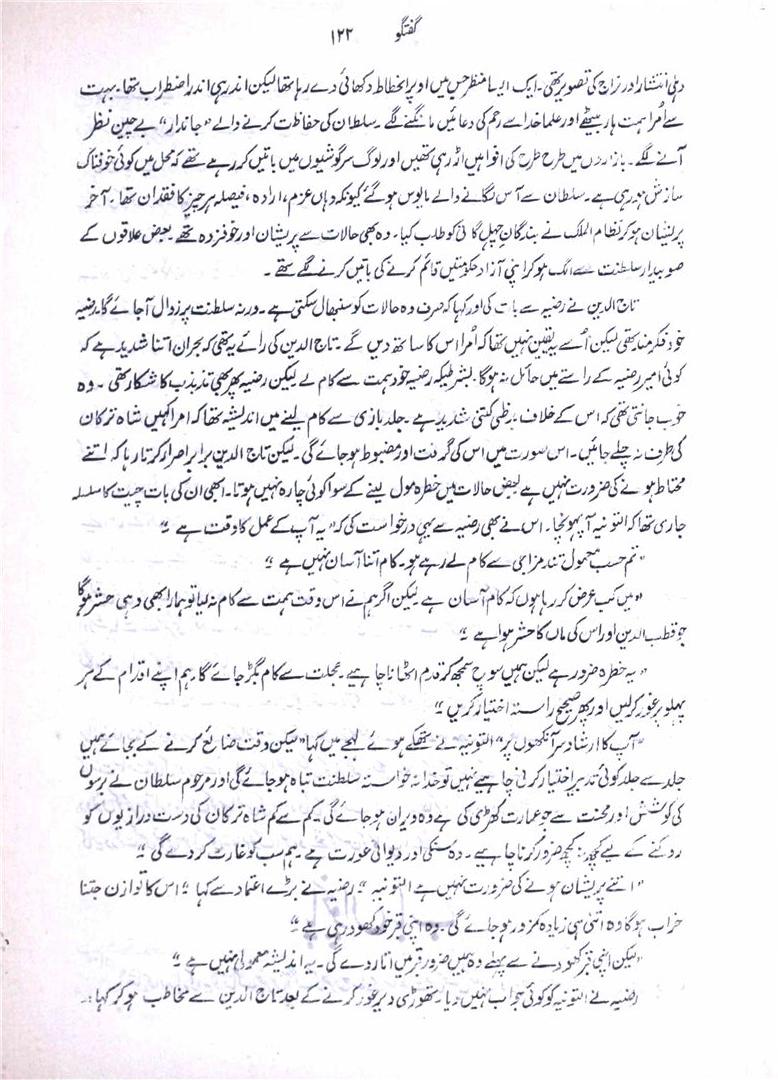 گفتگو ۱۲۲
دہلی انتشار اور نراج کی تصویر تھی۔ ایک ایسا منظر جس میں اوپر انحطاط دکھائی دے رہا تھا لیکن اندر ہی اندر اضطراب تھا۔ بہت
سے اُمرا ہمت ہار بیٹھے اور علما خدا سے رحم کی دعائیں مانگنے لگے۔ سلطان کی حفاظت کرنے والے "جاندار" بے چین نظر
آنے لگے۔ بازاروں میں طرح طرح کی افواہیں اڑ رہی تھیں اور لوگ سرگوشیوں میں باتیں کر رہے تھے کہ محل میں کوئی خوفناک
سازش ہو رہی ہے۔ سلطان سے آس لگانے والے مایوس ہو گئے کیونکہ وہاں عزم، ارادہ، فیصلہ ہر چیز کا فقدان تھا۔ آخر
پریشان ہو کر نظام الملک نے بندگانِ چہل گانی کو طلب کیا۔ وہ بھی حالات سے پریشان اور خوفزدہ تھے۔ بعض علاقوں کے
صوبیدار سلطنت سے الگ ہو کر اپنی آزاد حکومتیں قائم کرنے کی باتیں کرنے لگے تھے۔
تاج الدین نے رضیہ سے بات کی اور کہا کہ صرف وہ حالات کو سنبھال سکتی ہے۔ ورنہ سلطنت پر زوال آ جائے گا۔ رضیہ
خود فکرمند تھی لیکن اُسے یقین نہیں تھا کہ اُمرا اس کا ساتھ دیں گے۔ تاج الدین کی رائے یہ تھی کہ بحران اتنا شدید ہے کہ
کوئی امیر رضیہ کے راستے میں حائل نہ ہوگا بشرطیکہ رضیہ خود ہمت سے کام لے لیکن رضیہ پھر بھی تذبذب کا شکار تھی۔ وہ
خوب جانتی تھی کہ اس کے خلاف بدظنی کتنی شدید ہے۔ جلد بازی سے کام لینے میں اندیشہ تھا کہ امرا کہیں شاہ ترکان
کی طرف نہ چلے جائیں۔ اس صورت میں اس کی گرفت اور مضبوط ہو جائے گی۔ لیکن تاج الدین برابر اصرار کرتا رہا کہ اتنے
محتاط ہونے کی ضرورت نہیں ہے بعض حالات میں خطرہ مول لینے کے سوا کوئی چارہ نہیں ہوتا۔ ابھی ان کی بات چیت کا سلسلہ
جاری تھا کہ التونیہ آ پہونچا۔ اس نے بھی رضیہ سے یہی درخواست کی کہ "یہ آپ کے عمل کا وقت ہے"
"تم حسب معمول تند مزاجی سے کام لے رہے ہو۔ کام اتنا آسان نہیں ہے"
"میں کب عرض کر رہا ہوں کہ کام آسان ہے لیکن اگر ہم نے اس وقت ہمت سے کام نہ لیا تو ہمارا بھی وہی حشر ہوگا
جو قطب الدین اور اس کی ماں کا حشر ہوا ہے"
"یہ خطرہ ضرور ہے لیکن ہمیں سوچ سمجھ کر قدم اٹھانا چاہیے۔ عجلت سے کام بگڑ جائے گا۔ ہم اپنے اقدام کے ہر
پہلو پر غور کر لیں اور پھر صحیح راستہ اختیار کریں"
"آپ کا ارشاد سر آنکھوں پر" التونیہ نے تھکے ہوئے لہجے میں کہا "لیکن وقت ضائع کرنے کے بجائے ہمیں
جلد سے جلد کوئی تدبیر اختیار کرنی چاہیے نہیں تو خدانخواستہ سلطنت تباہ ہو جائے گی اور مرحوم سلطان نے برسوں
کی کوشش اور محنت سے جو عمارت کھڑی کی ہے وہ ویران ہو جائے گی۔ کم سے کم شاہ ترکان کی دست درازیوں کو
روکنے کے لیے کچھ نہ کچھ ضرور کرنا چاہیے۔ وہ سنکی اور دیوانی عورت ہے۔ ہم سب کو غارت کر دے گی"
"اتنے پریشان ہونے کی ضرورت نہیں ہے التونیہ" رضیہ نے بڑے اعتماد سے کہا "اس کا توازن جتنا
خراب ہوگا وہ اتنی ہی زیادہ کمزور ہو جائے گی۔ وہ اپنی قبر خود کھود رہی ہے"
"لیکن اپنی قبر کھودنے سے پہلے وہ ہمیں ضرور قبر میں اتار دے گی۔ یہ اندیشہ معمولی نہیں ہے"
رضیہ نے التونیہ کو کوئی جواب نہیں دیا۔ تھوڑی دیر غور کرنے کے بعد تاج الدین سے مخاطب ہو کر کہا:۔